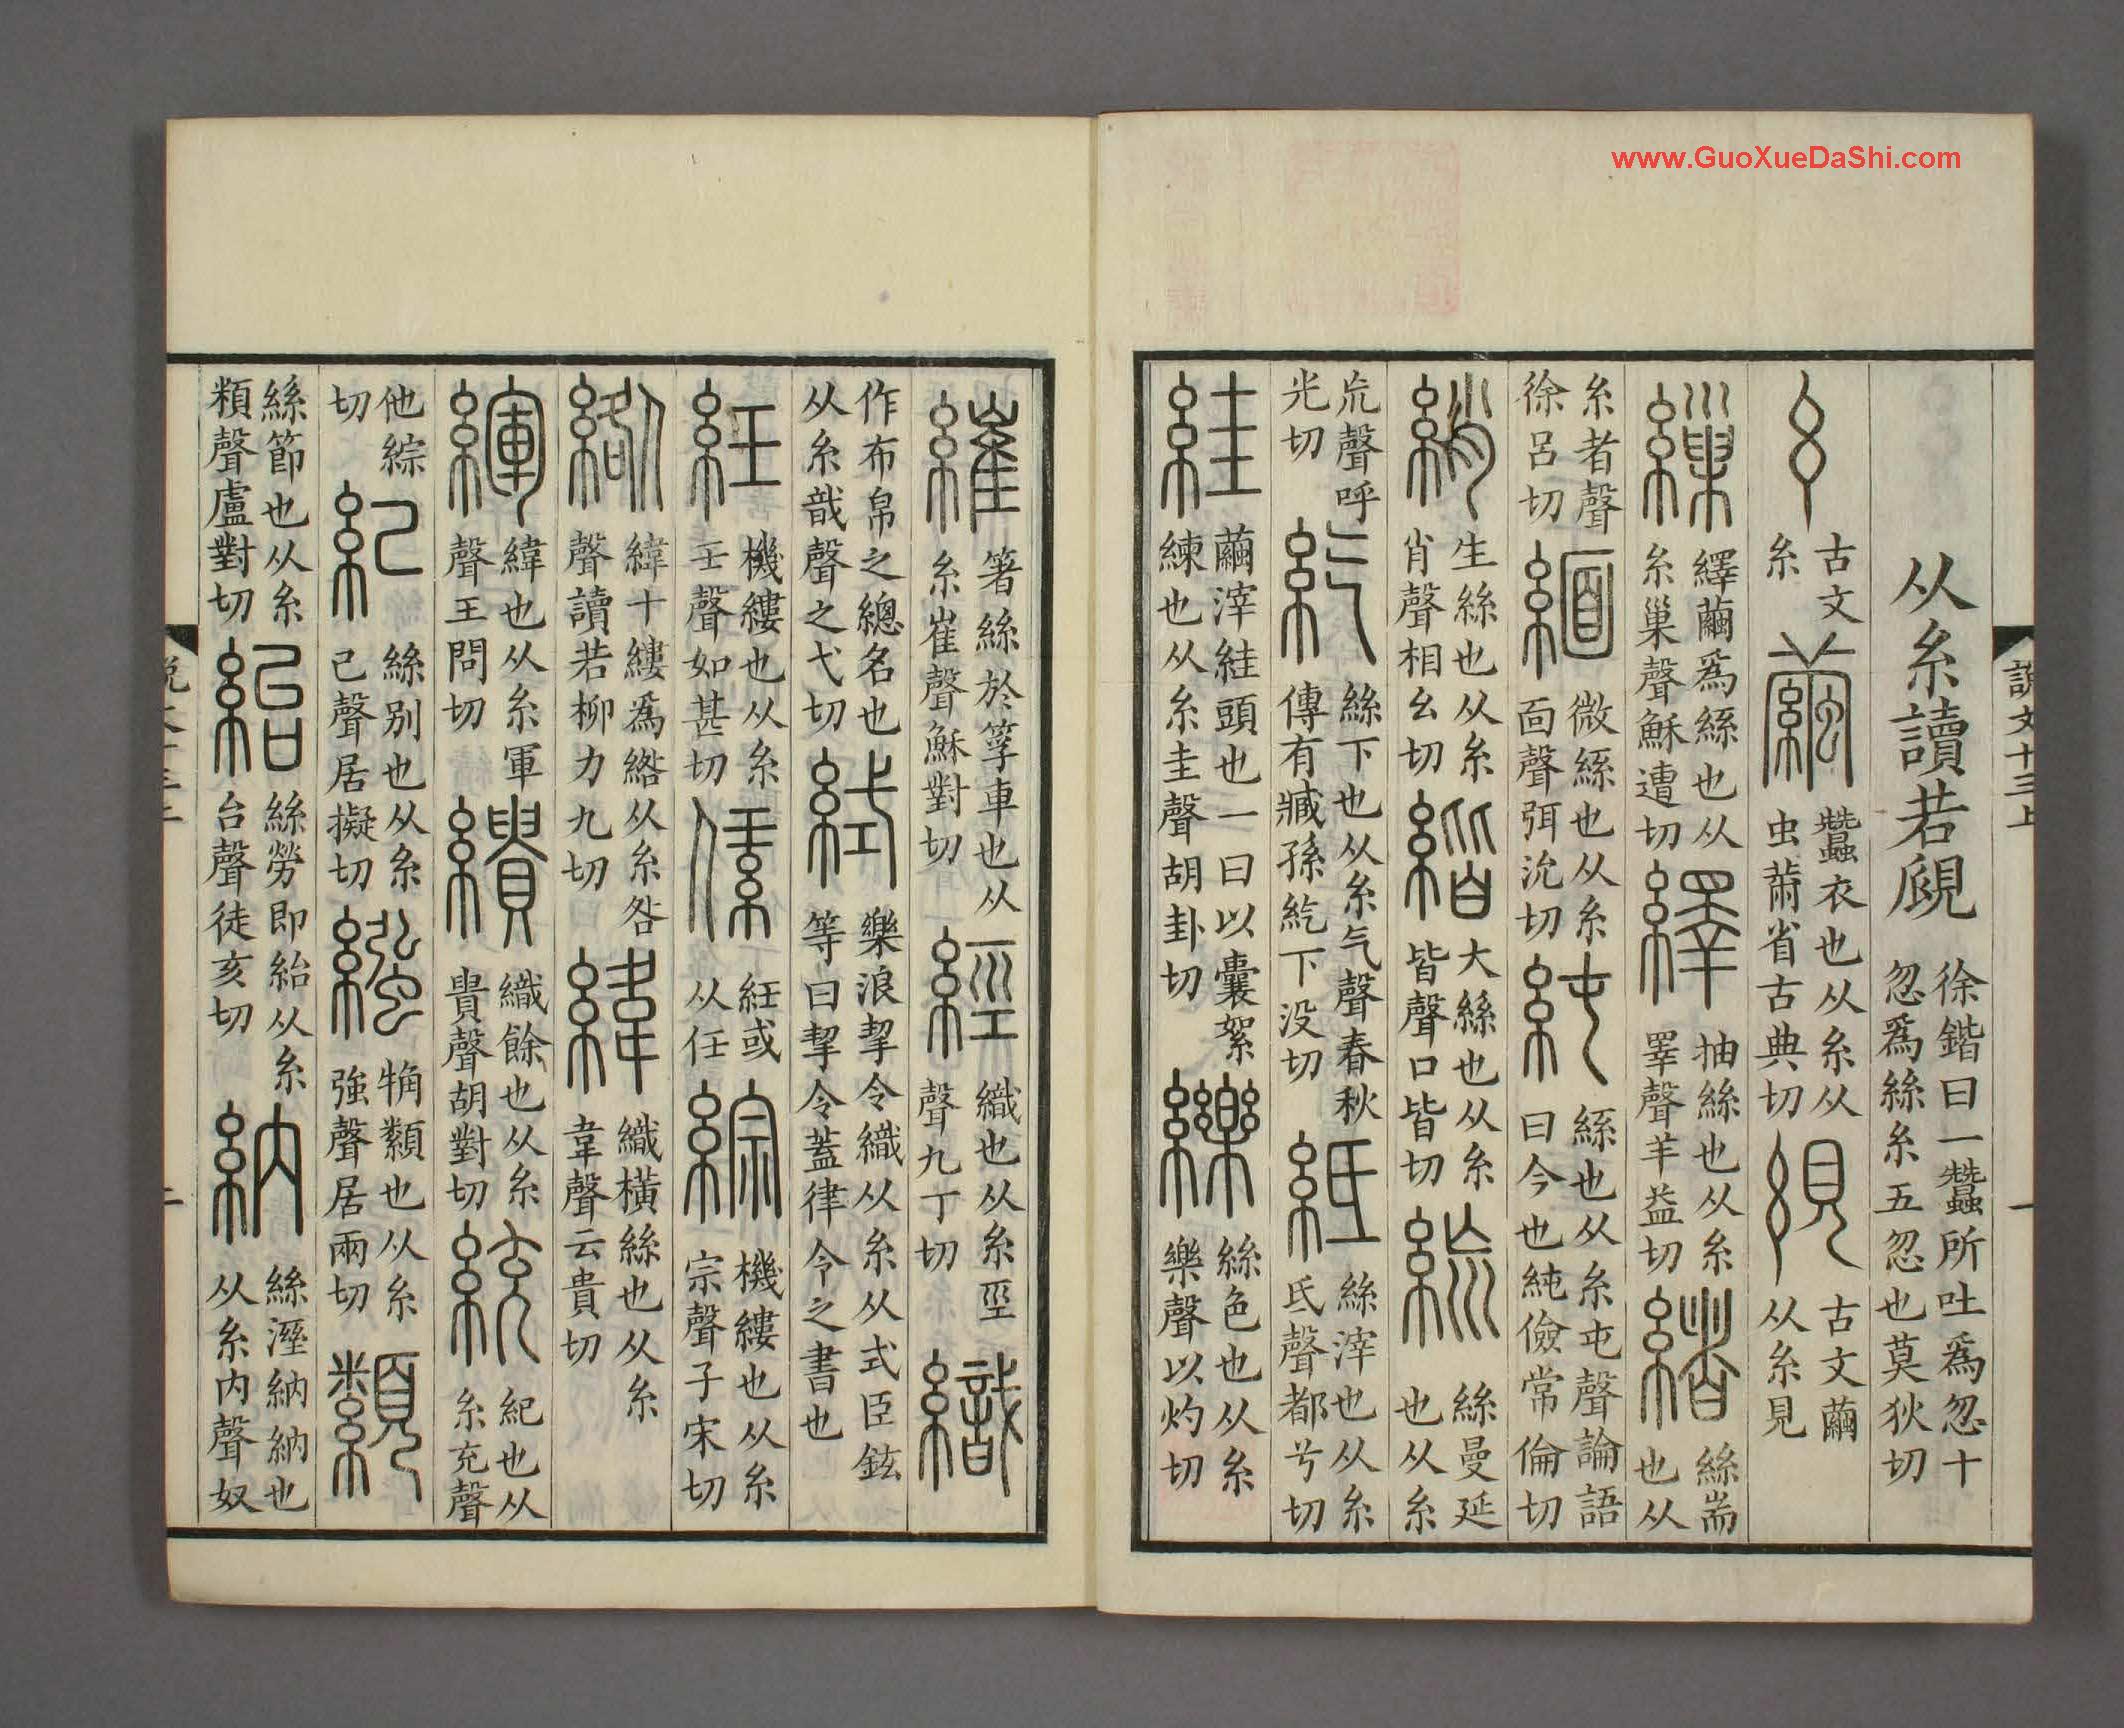 說文十三上
一
从糸讀若覛 徐鍇曰一蠶所吐爲忽十忽爲絲糸五忽也莫狄切
糸 古文糸 繭 蠶衣也从糸从虫黹省古典切 絸 古文繭从糸見
繅 繹繭爲絲也从糸巢聲穌遭切 繹 抽絲也从糸睪聲羊益切 緒 絲耑也从
糸者聲徐呂切 緬 微絲也从糸面聲弭沇切 純 絲也从糸屯聲論語曰今也純儉常倫切
綃 生絲也从糸肖聲相幺切 緒 大絲也从糸皆聲口皆切 䋬 絲曼延也从糸
㡆聲呼光切 紇 絲下也从糸气聲春秋傳有臧孫紇下没切 紙 絲滓也从糸氐聲都兮切
絓 繭滓絓頭也一曰以囊絮練也从糸圭聲胡卦切 纅 絲色也从糸樂聲以灼切
繀 箸絲於筟車也从糸崔聲穌對切 經 織也从糸巠聲九丁切 織
作布帛之總名也从糸戠聲之弋切 𦀗 樂浪挈令織从糸从式臣鉉等曰挈令蓋律令之書也
紝 機縷也从糸壬聲如甚切 𦁘 紝或从任 綜 機縷也从糸宗聲子宋切
綹 緯十縷爲綹从糸咎聲讀若柳力九切 緯 織橫絲也从糸韋聲云貴切
緷 緯也从糸軍聲王問切 繢 織餘也从糸貴聲胡對切 統 紀也从糸充聲
他綜切 紀 絲別也从糸己聲居擬切 繈 觕纇也从糸強聲居兩切 纇
絲節也从糸頪聲盧對切 紿 絲勞即紿从糸台聲徒亥切 納 絲溼納納也从糸内聲奴
說文十三上
二
www.GuoXueDaShi.com